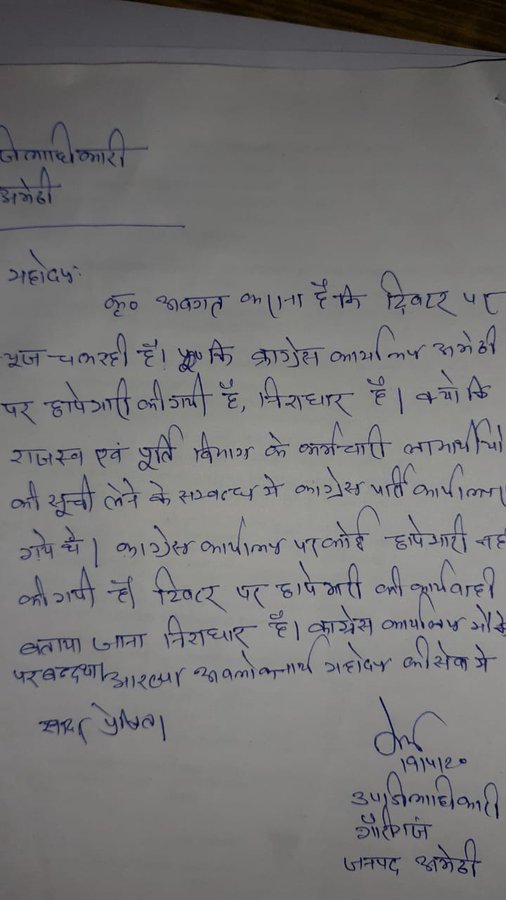 जिलाधिकारी
अमेठी
महोदय,
कृ० अवगत कराना है कि ट्विटर पर
न्यूज चल रही है। कि कांग्रेस कार्यालय अमेठी
पर छापेमारी की गयी है, निराधार है। क्योंकि
राजस्व एवं पूर्ति विभाग के कर्मचारी लाभार्थियों
की सूची लेने के सम्बन्ध में कांग्रेस पार्टी कार्यालय
गये थे। कांग्रेस कार्यालय पर कोई छापेमारी नहीं
की गयी है। ट्विटर पर छापेमारी की कार्यवाही
बताया जाना निराधार है। कांग्रेस कार्यालय मौके
पर बन्द था। आख्या अवलोकनार्थ महोदय की सेवा में
सादर प्रेषित।
उपजिलाधिकारी
गौरीगंज
जनपद अमेठी